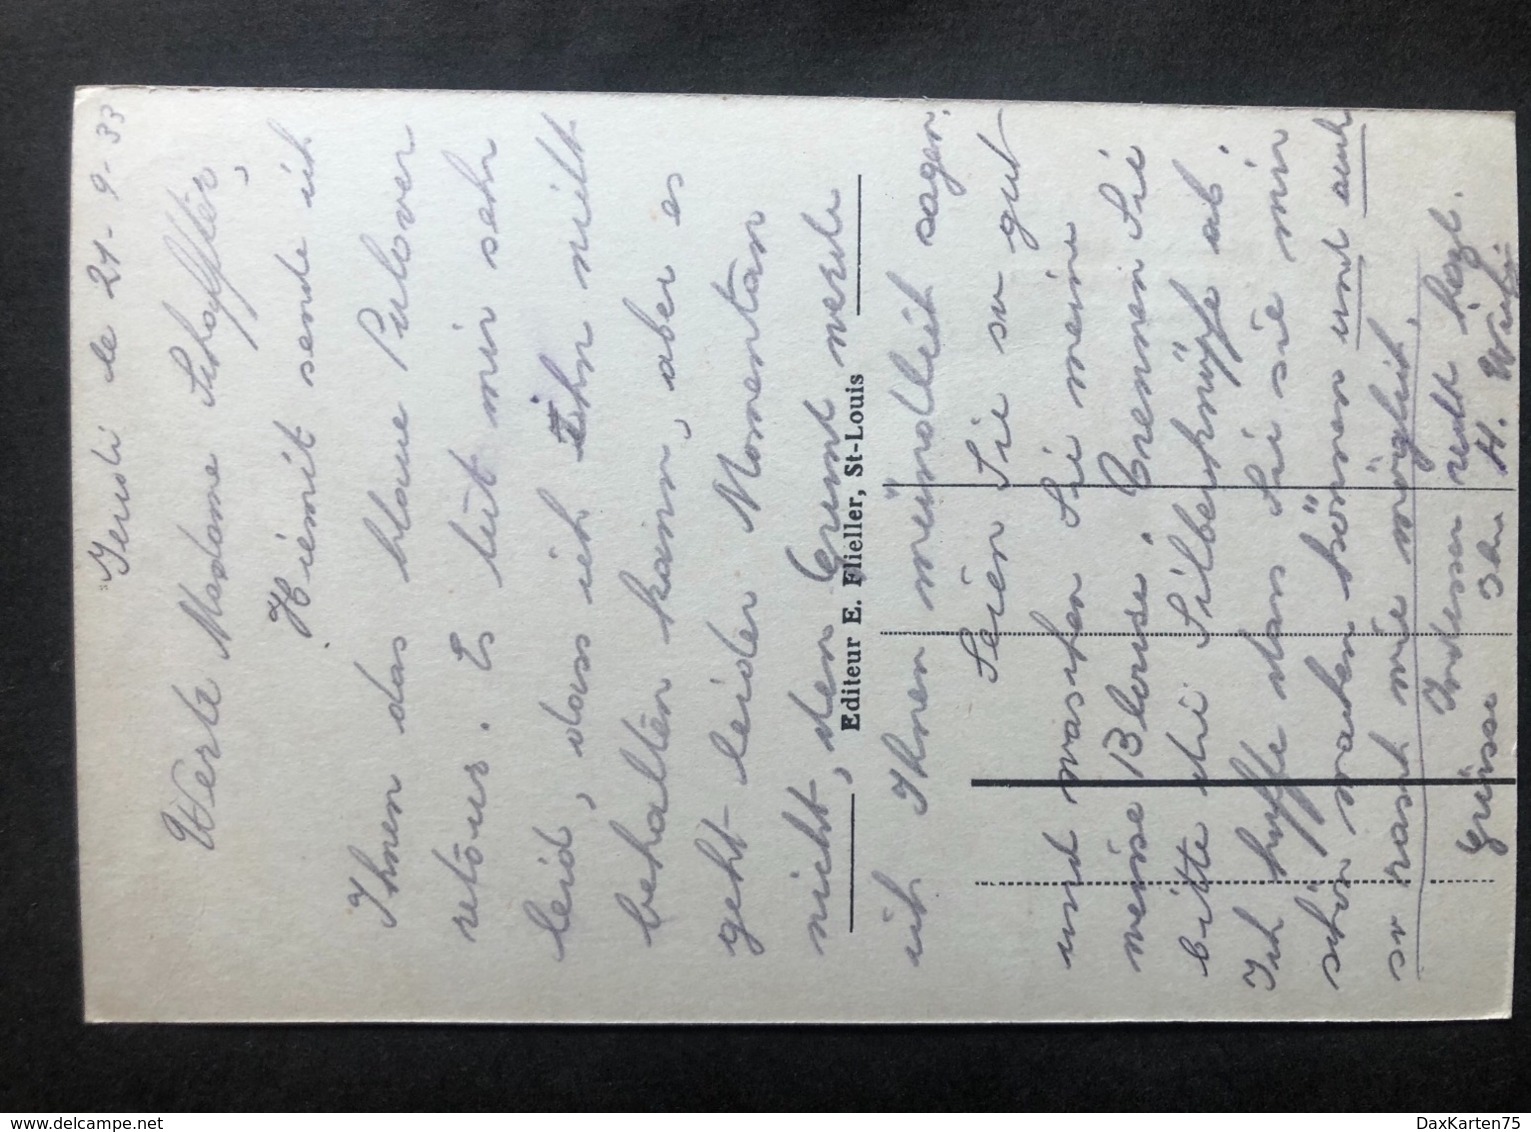 le 21-9-33
Werte Madame Schaffter,
Hiemit sende ich
Ihnen das blaue Pulover
retour. Es tut mir sehr
leid, dass ich Ihn nicht
behalten kann, aber es
geht leider Momentan
nicht, den Grund werde
Editeur E. Flieller, St-Louis
ich Ihnen mündlich sagen.
Seien Sie so gut
und waschen Sie meine
weisse Blouse. Trennen Sie
bitte die Silberknöpfe ab.
Ich hoffe dan Sie sie mir
schön machen können und auch
so rasch wie möglich.
Indessen recht hezl.
Grüsse Ihre H.
DaxKarten75
delcampe.net